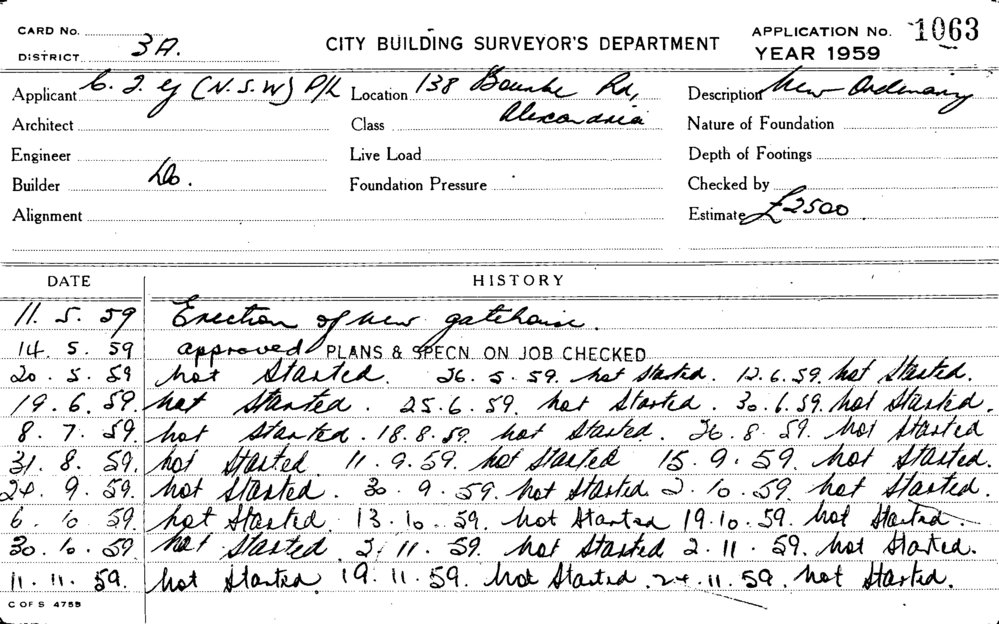 CARD No.
DISTRICT 3A.
CITY BUILDING SURVEYOR'S DEPARTMENT
APPLICATION No. 1063
YEAR 1959
Applicant (N.S.W) P/L Location 138 Bourke Rd, Description New Ordinary
Architect Class Alexandria Nature of Foundation
Engineer Live Load Depth of Footings
Builder Do. Foundation Pressure Checked by
Alignment Estimate £2500
DATE HISTORY
11. 5. 59 Erection of new gatehouse.
14. 5. 59 approved PLANS & SPECN. ON JOB CHECKED
20. 5. 59 not started. 26. 5. 59. not started. 12.6.59. not started.
19. 6. 59. not started. 25.6.59. not started. 30.6.59. not started.
8. 7. 59. not started. 18.8.59. not started. 26.8.59. not started
31. 8. 59. not started. 11.9.59. not started 15.9.59. not started.
24. 9. 59. not started. 30.9.59. not started. 2.10.59 not started.
6. 10. 59. not started. 13.10.59. not started 19.10.59. not started.
30. 10. 59. not started. 11. 59. not started 2.11.59. not started.
11. 11. 59. not started 19.11.59. not started. 24.11.59. not started.
C OF S 4755